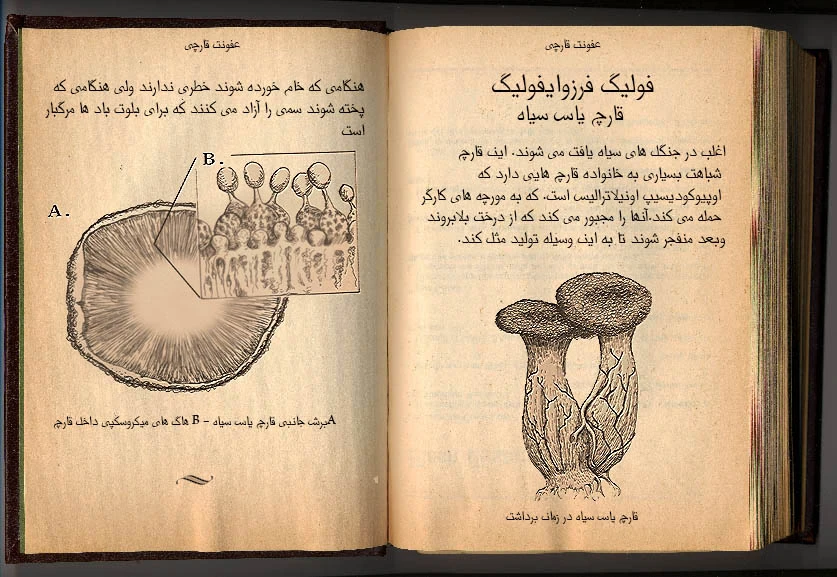 عفونت قارچی
فولیگ فرزوایفولیگ
قارچ یاس سیاه
اغلب در جنگل های سیاه یافت می شوند. این قارچ
شباهت بسیاری به خانواده قارچ هایی دارد که
اوپیوکودیسیپ اونیلاترالیس است. که به مورچه های کارگر
حمله می کند.آنها را مجبور می کند که از درخت بلابروند
وبعد منفجر شوند تا به این وسیله تولید مثل کند.
قارچ یاس سیاه در زمان برداشت
عفونت قارچی
هنگامی که خام خورده شوند خطری ندارند ولی هنگامی که
پخته شوند سمی را آزاد می کنند که برای بلوت باد ها مرگبار
است
B.
A.
Aبرش جانبی قارچ یاس سیاه - B هاگ های میکروسکپی داخل قارچ